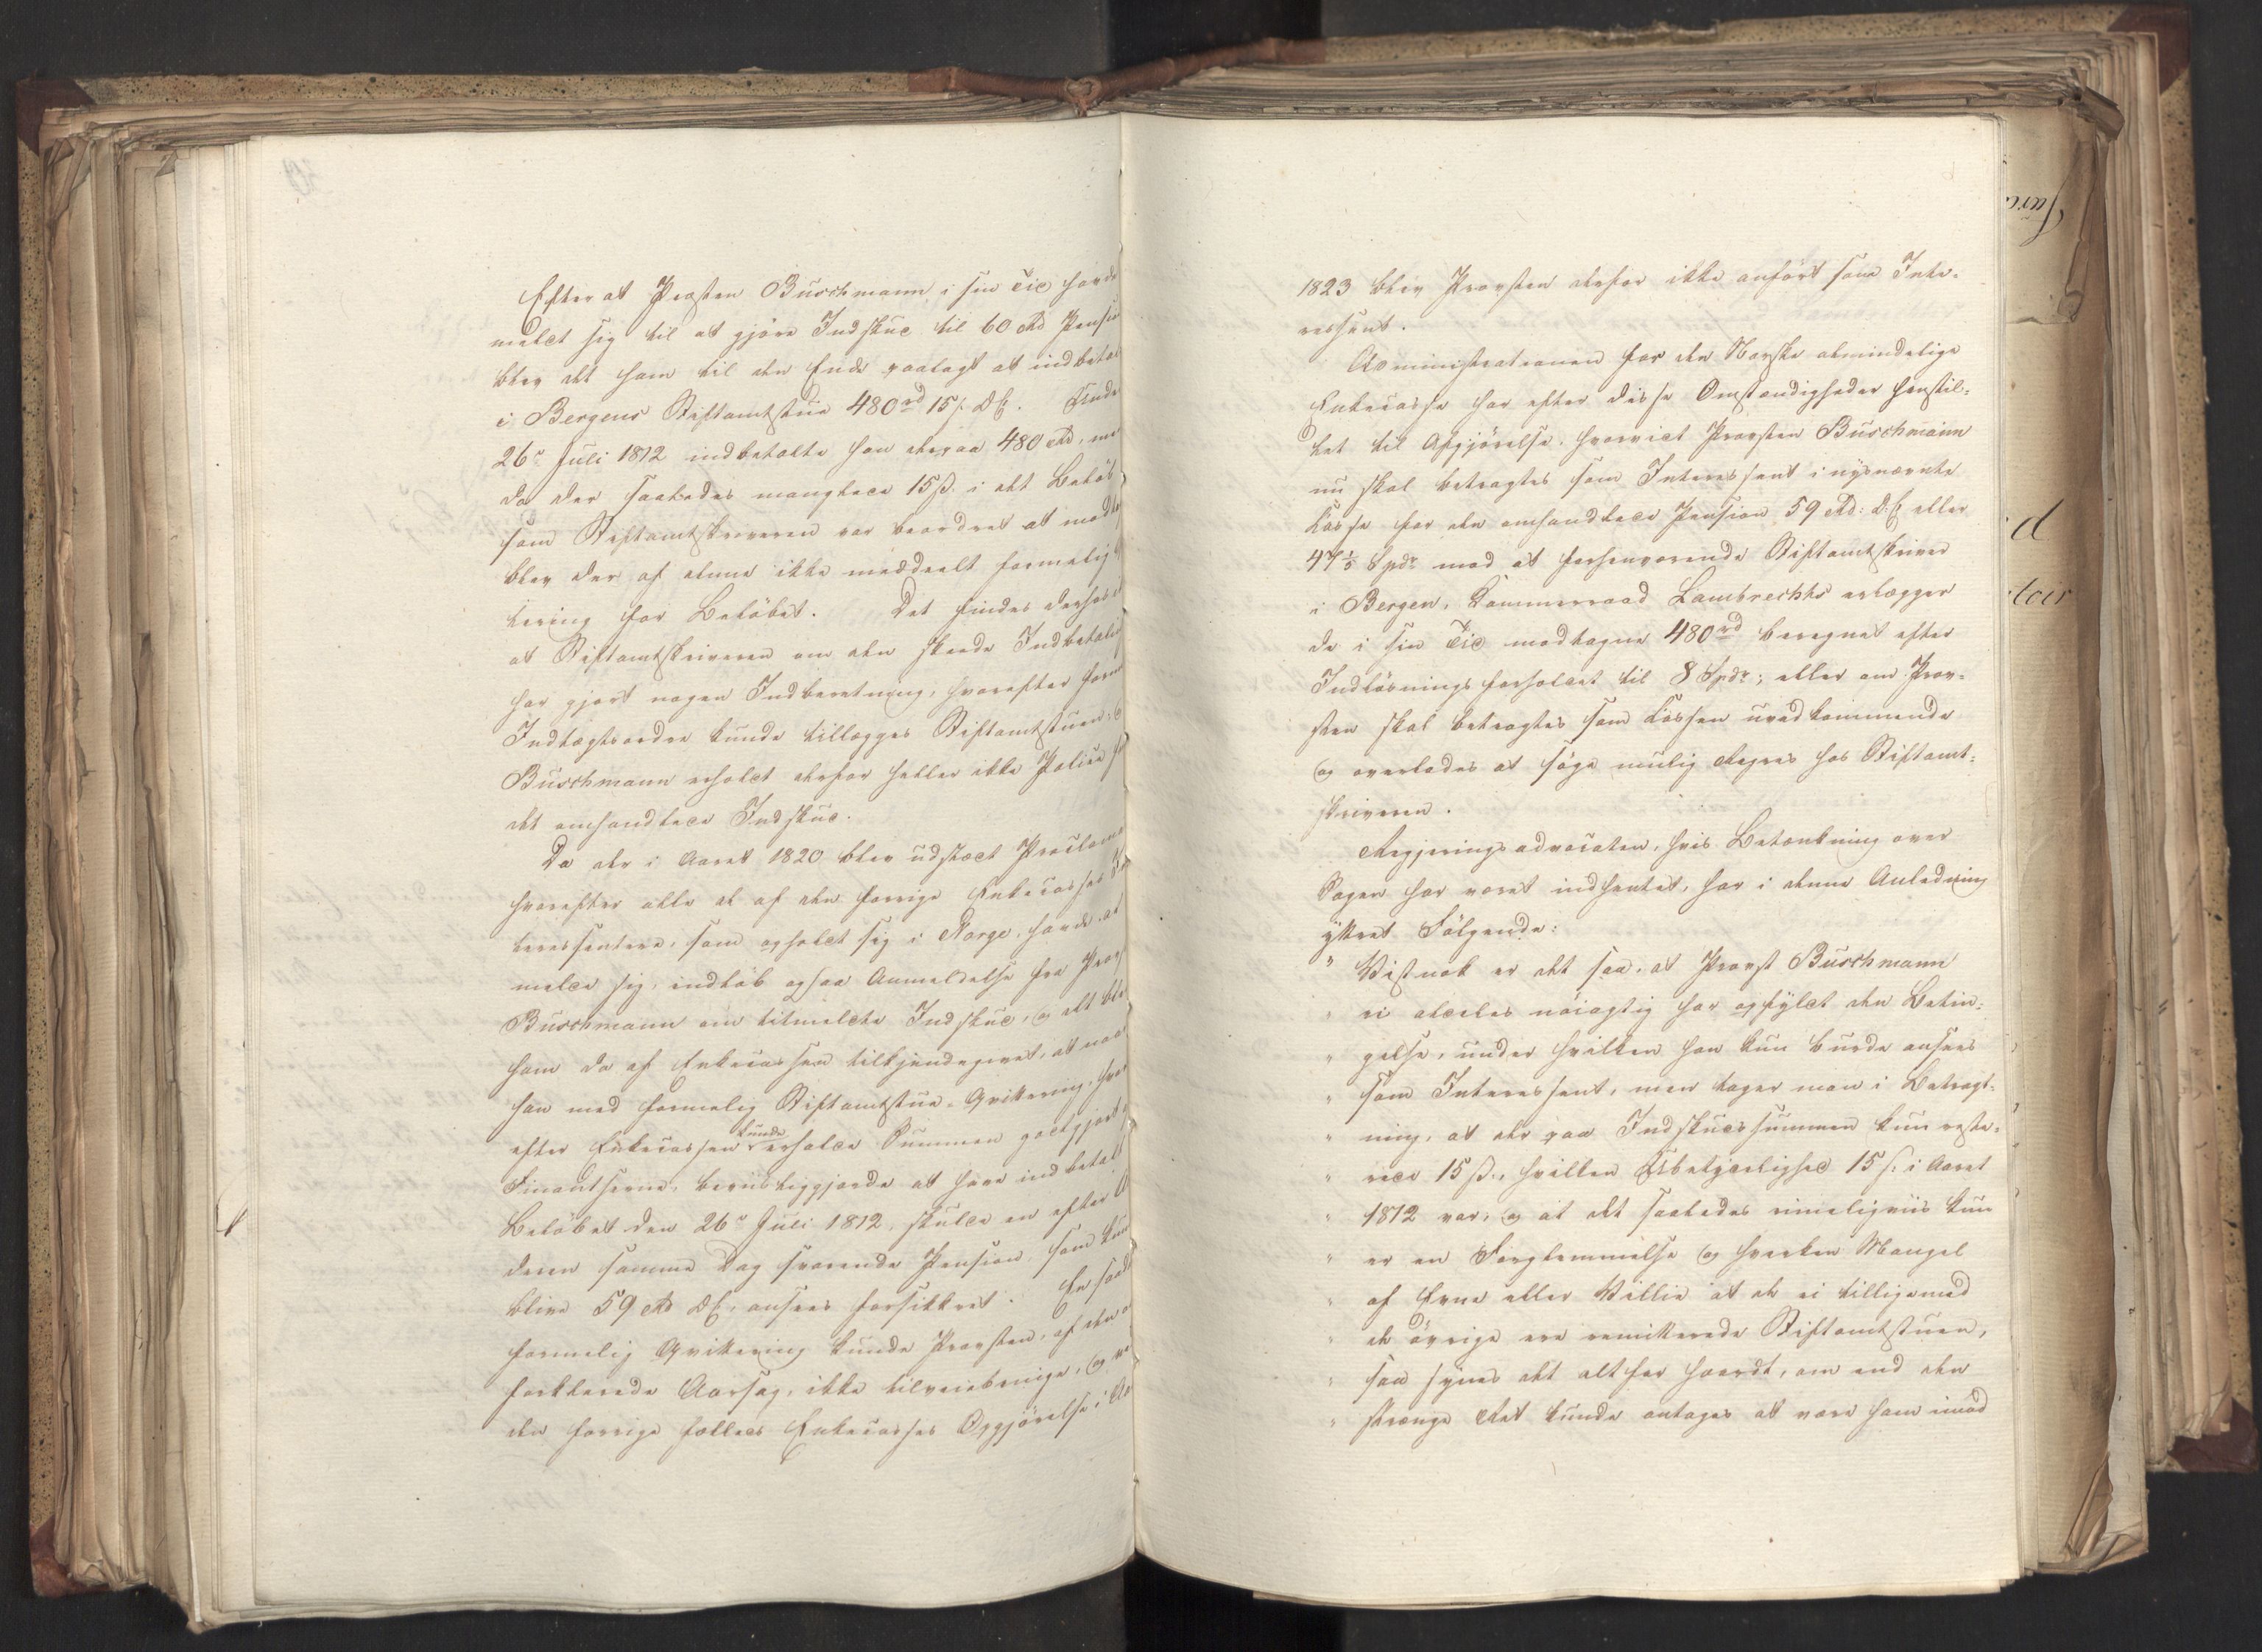 Efter at Provsten Buschmann i sin Tid havde
meldt sig til at gjöre Indskud til 60 Rd Pensio
blev det ham til den Ende paalagt at indbetal
i Bergens Stiftamtstue 480 rd 15 s. DC. Under
26de Juli 1812 indbetalte han derpaa 480 Rd, me
da der saaledes manglede 15 ß. i det Belöb
som Stiftamtskriveren var beordret at modt
blev der af denne ikke meddeelt formelig
tering for Belöbet. Det findes derhos
at Stiftamtskriveren om den skeede Indbetali
har gjort nogen Indberetning, hvorefter form
Indtægtsordre kunde tillægges Stiftamtstuen, 
Buschmann erholdt derfor heller ikke Police
det omhandlede Indskud.
Da der i Aaret 1820 blev udstædt Proclama
hvorefter alle de af den forrige Enkecasses In
teressentere, som opholdt sig i Norge, havde at
melde sig, indlöb ogsaa Anmeldelse fra Prov
Buschmann om tilmeldte Indskud, og det ble
ham da af Enkecassen tilkjendegivet, at naar
han med formelig Stiftamtstue-Qvittering, hvor
efter Enkecassen kunde erholde Summen godtgjort
Finantserne, beviisliggjorde at have indbetalt
Belöbet den 26de Juli 1812, skulde en efter
deren samme Dag svarende Pension, som kun
blive 59 Rd DC, ansees forsikkret. En saad
formelig Qvittering kunde Provsten, af den
forklarede Aarsag, ikke tilveiebringe, og ve
den forrige fælleds Enkecasses Opgjörelse i Aa
1823 blev Provsten derfor ikke anfört som Inte-
ressent.
Administrationen for den Norske almindelige
Enkecasse har efter disse Omstændigheder henstil-
let til Afgjörelse, hvorvidt Provsten Buschmann
nu skal betragtes som Interessent i nysnævnte
Casse for den omhandlede Pension 59 Rd: D.C eller
47 1/5 Spdr mod at forhenværende Stiftamtskriver
i Bergen, Kammerraad Lambrechts erlægger
de i sin Tid modtagne 480 rd beregnet efter
Indlösningsforholdet til 8 Spdr; eller om Prov-
sten skal betragtes som Cassen uvedkommende
og overlades at söge mulig Regres hos Stiftamt-
skriveren.
Regjeringsadvocaten, hvis Betænkning over
Sagen har været indhentet, har i denne Anledning
yttret Fölgende:
" Vistnok er det saa, at Provst Buschmann
" ei aldeles nöiagtig har opfyldt den Betin-
" gelse, under hvilken han kun burde ansees
" som Interessent, men tager man i Betragt-
" ning, at der paa Indskudssummen kun reste-
" rede 15 ß., hvilken Ubetydelighed 15 s: i Aaret
" 1812 var, og at det saaledes rimeligviis kun
" er en Forglemmelse og hverken Mangel
" af Evne eller Villie at de ei tilligemed
" de övrige ere remitterede Stiftamtstuen,
" saa synes det altfor haardt, om end den
" strænge Ret kunde antages at være ham imod